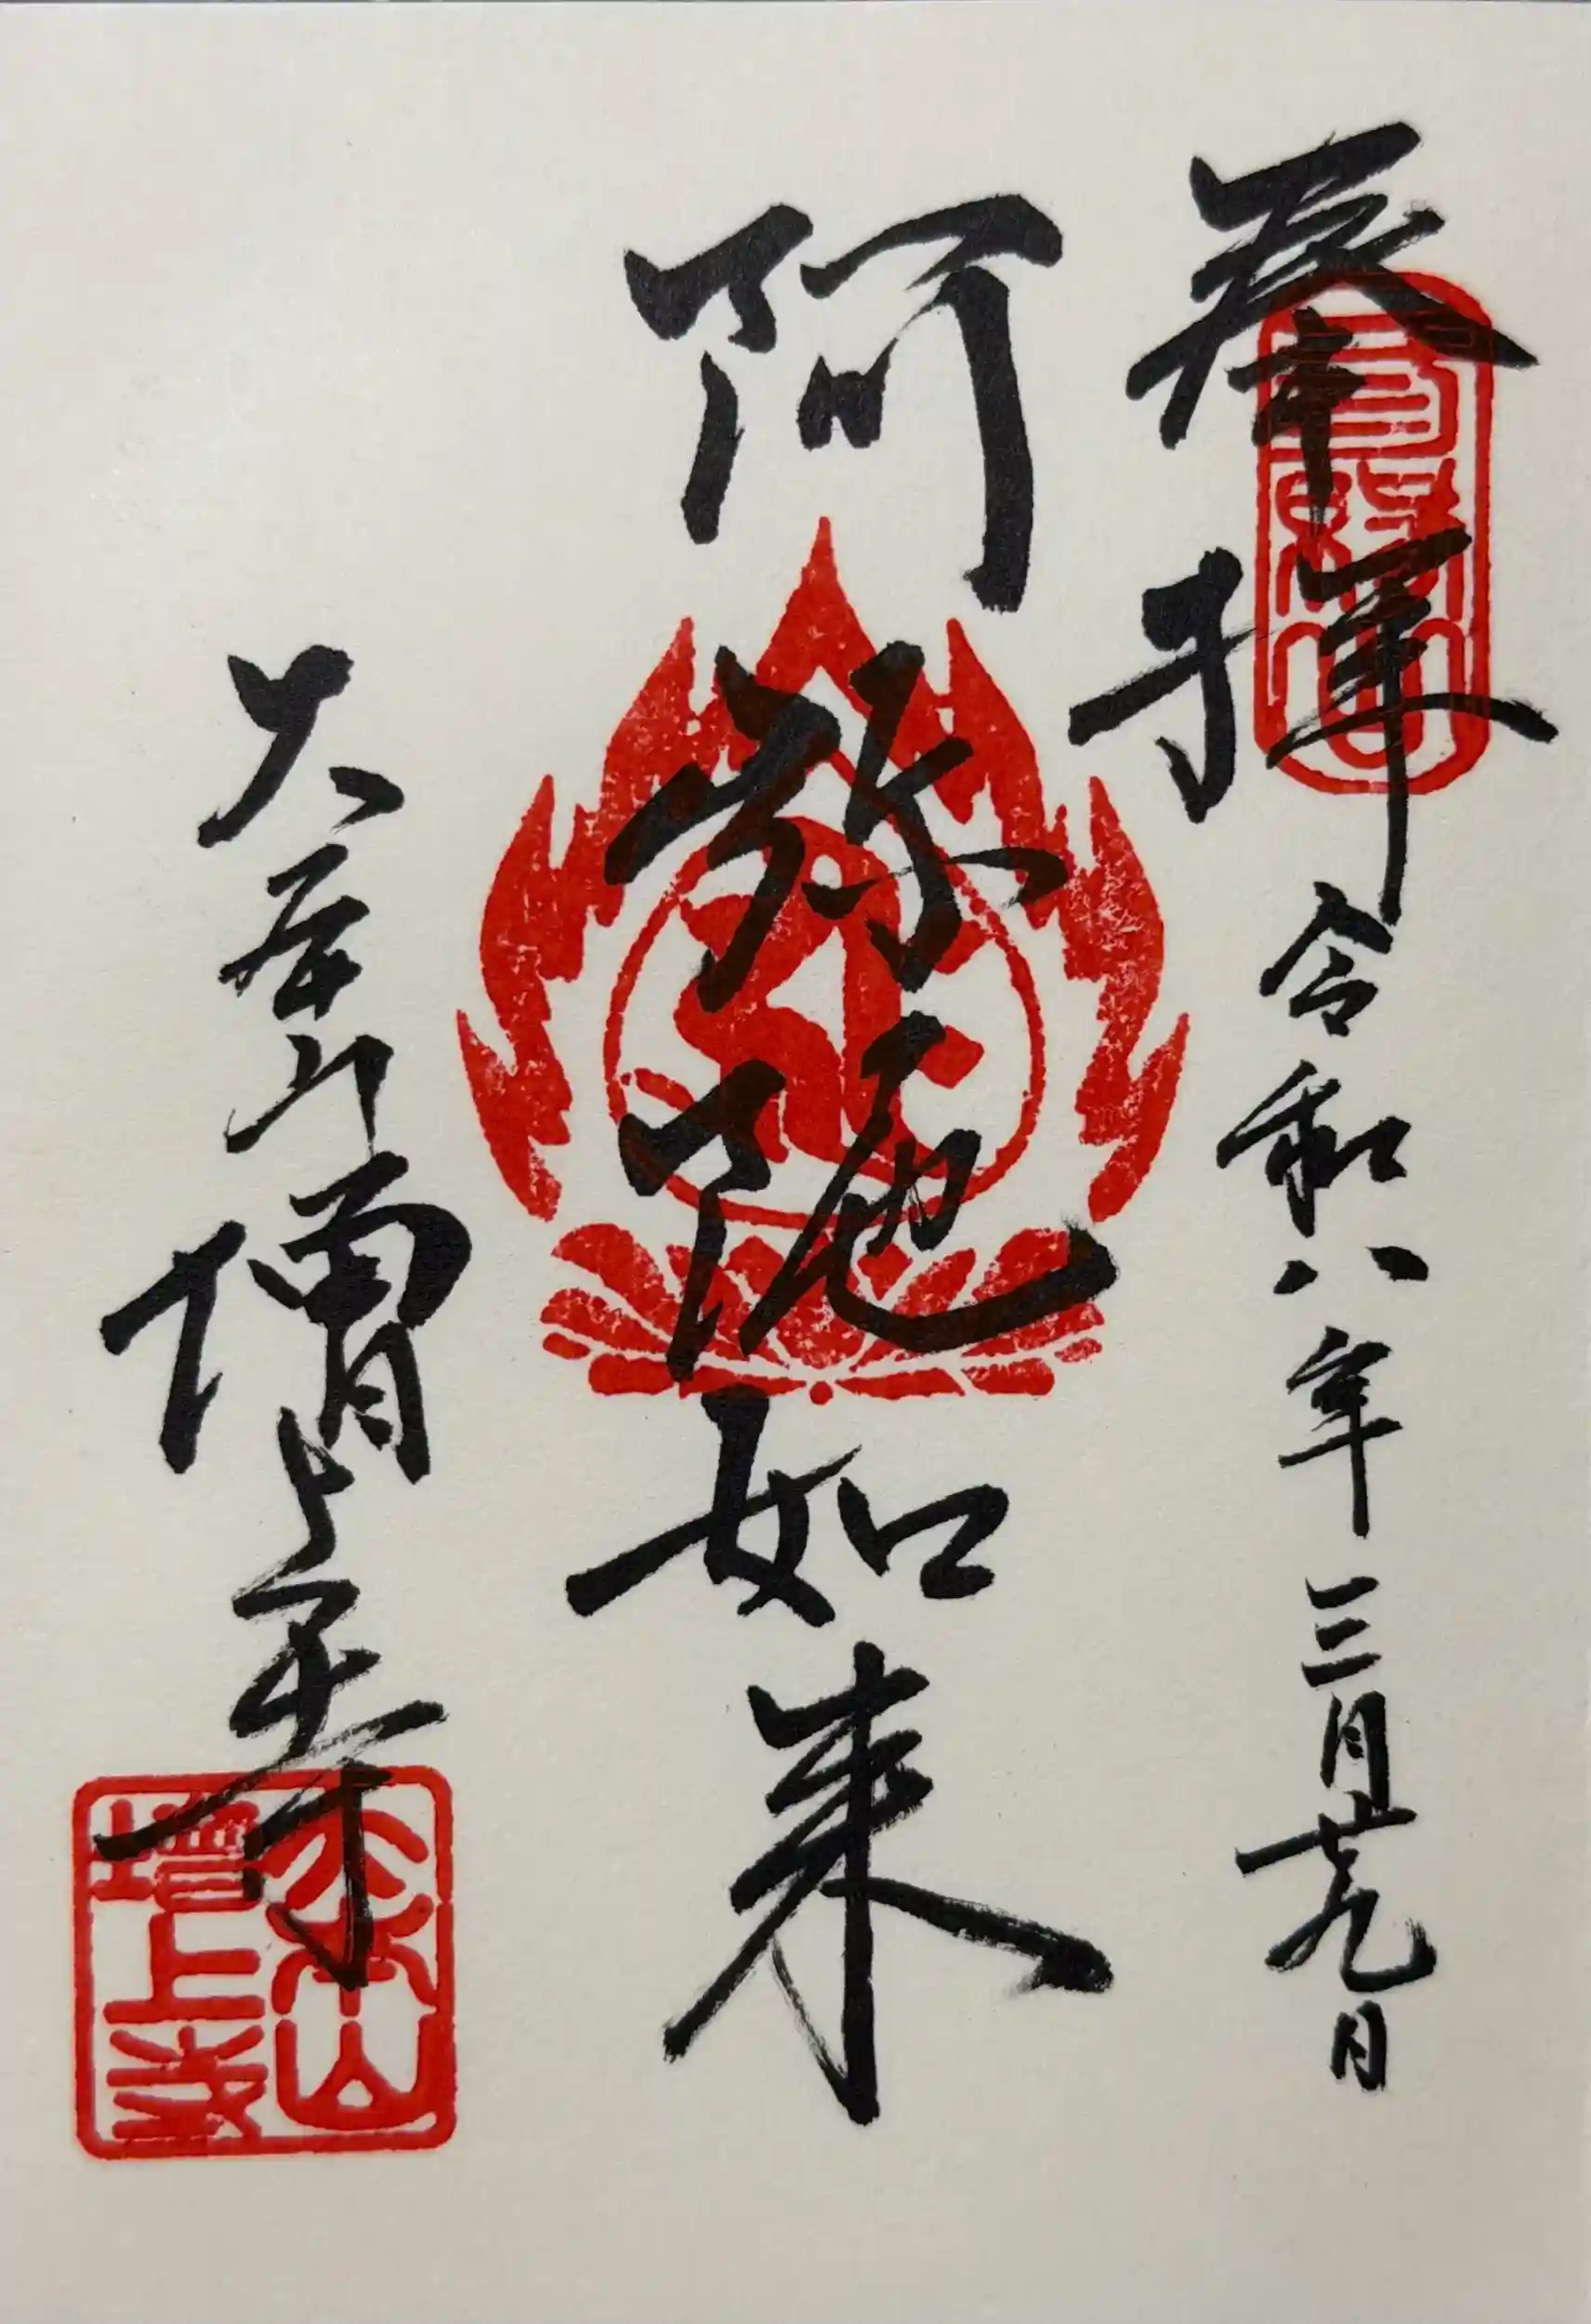 奉拝 令和八年三月廿九日
阿弥陀如来
大本山 増上寺
大本山
增上寺